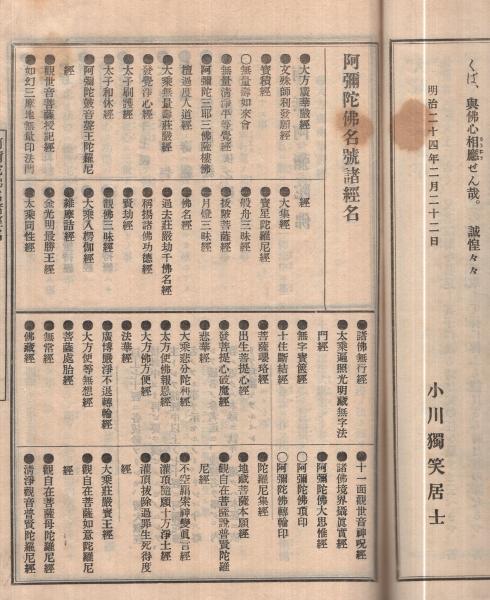 くば、與佛心相應せん哉。　誠惶々々
明治二十四年二月二十二日
小川獨笑居士
阿彌陀佛名號諸經名
●大方廣華嚴經
●文殊師利發願經
●寶積經
○無量壽如來會
●無量清淨平等覺經
●阿彌陀三耶三佛薩樓佛
檀過度人道經
●大乘無量壽莊嚴經
●發覺淨心經
●太子刷護經
●太子和休經
●阿彌陀鼓音聲王陀羅尼
經
●觀世音菩薩授記經
●如幻三摩地無量印法門
經
●大集經
●寶星陀羅尼經
●般舟三昧經
●拔陂菩薩經
●月燈三昧經
●佛名經
●過去莊嚴劫千佛名經
●稱揚諸佛功德經
●賢劫經
●觀佛三昧經
●大乘入楞伽經
●維摩詰經
●金光明最勝王經
●大乘同性經
●諸佛無行經
●大乘遍照光明藏無字法
門經
●無字寶篋經
●十住斷結經
●菩薩瓔珞經
●出生菩提心經
●發菩提心破魔經
●悲華經
●大乘悲分陀利經
●大方便佛報恩經
●大方佛方便經
●法華經
●廣博嚴淨不退轉輪經
●大方便等無想經
●菩薩處胎經
●無常經
●佛藏經
●十一面觀世音神呪經
●諸佛境界攝眞實經
●阿彌陀佛大思惟經
○阿彌陀佛頂印
○阿彌陀佛轉輪印
●陀羅尼集經
●地藏菩薩本願經
●觀自在菩薩說普賢陀羅
尼經
●不空羂索神變眞言經
●灌頂隨願十方淨土經
●灌頂拔除過罪生死得度
經
●大乘莊嚴寶王經
●觀自在菩薩如意陀羅尼
經
●觀自在菩薩母陀羅尼經
●清淨觀音普賢陀羅尼經